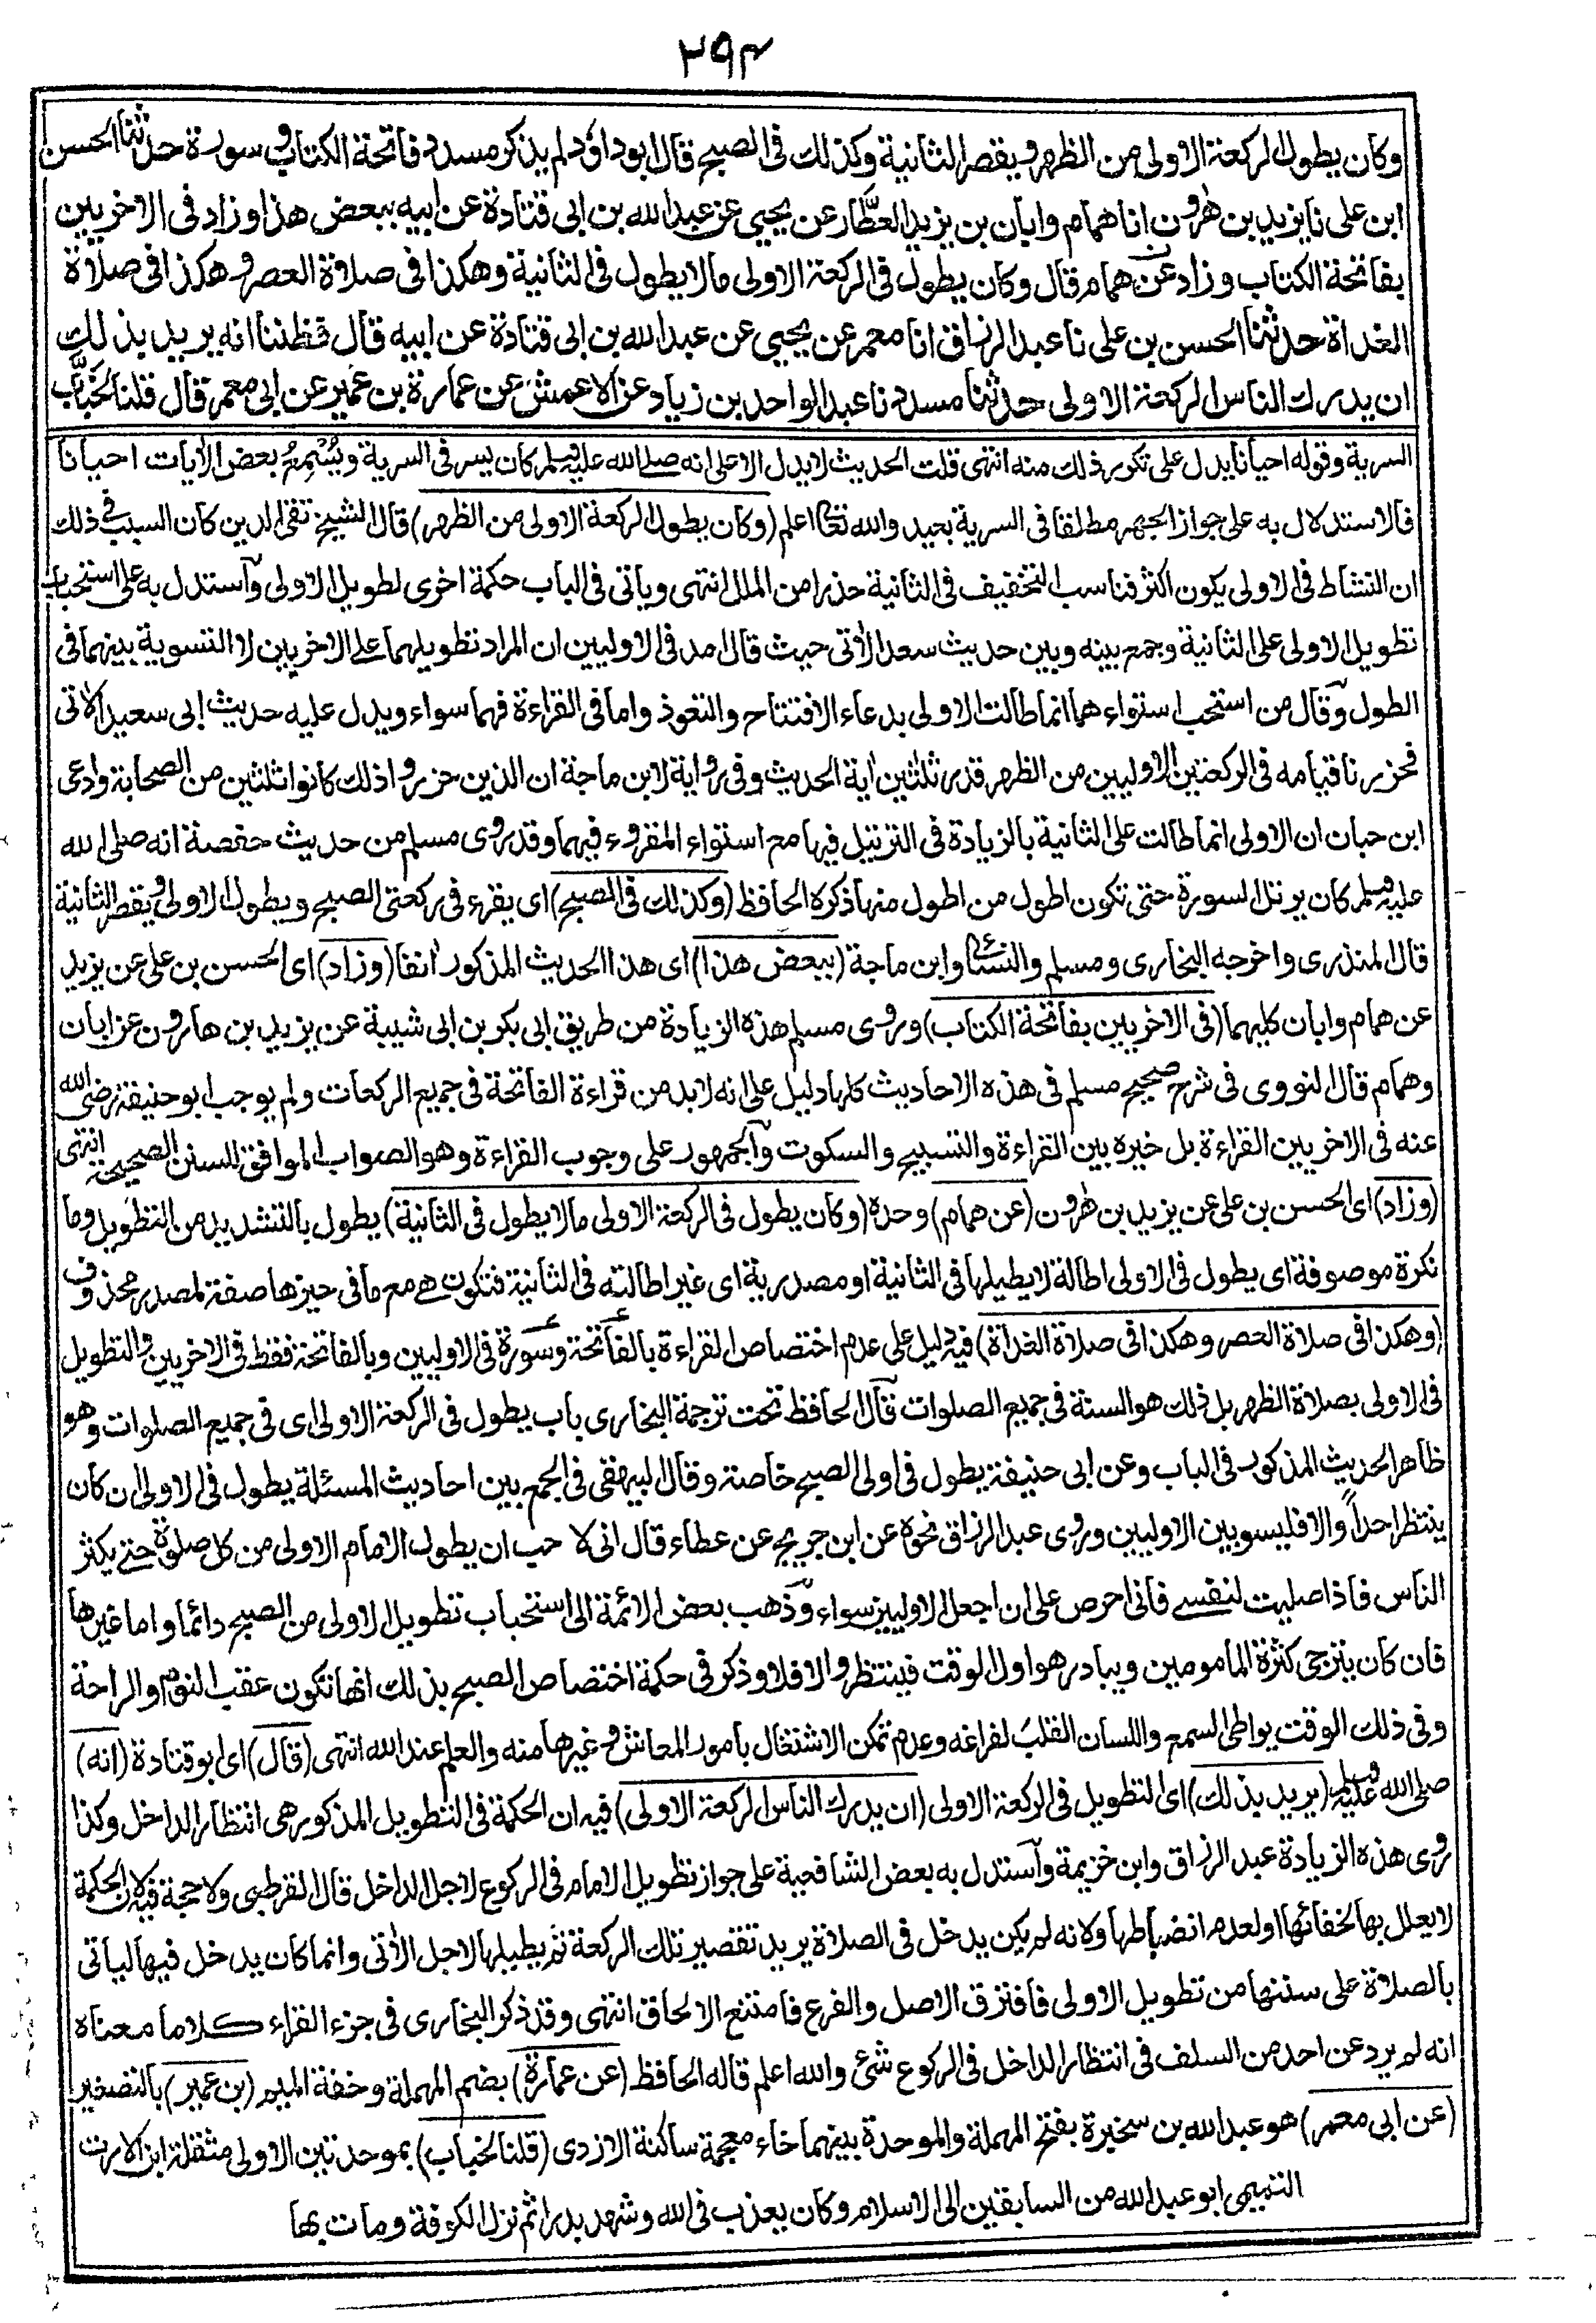 ٢٩٤
وكان يطول الركعة الاولى من الظهر ويقصر الثانية وكذلك فى الصبح قال ابوداؤد لم يذكر مسدد فاتحة الكتاب و سورة حدثنا الحسن
ابن على نا يزيد بن هٰرون انا همام وابان بن يزيد العطَّار عن يحيى عن عبد الله بن ابى قتادة عن ابيه ببعض هذا وزاد فى الاخريين
بفاتحة الكتاب وزاد عن همام قال وكان يطول فى الركعة الاولى مالا يطول فى الثانية وهكذا فى صلاة العصر وهكذا فى صلاة
الغداة حدثنا الحسن بن على نا عبد الرزاق انا معمر عن يحيى عن عبد الله بن ابى قتادة عن ابيه قال فظننا انه يريد بذلك
ان يدرك الناس الركعة الاولى حدثنا مسدد نا عبد الواحد بن زياد عن الاعمش عن عمارة بن عمير عن ابى معمر قال قلنا لخبَّاب
السرية وقوله احيانا يدل على تكرر ذلك منه انتهى قلت الحديث لا يدل الا على انه صلى الله عليه وسلم كان يسر فى السرية ويُسْمِعُ بعض الاٰيات احيانا
فالاستدلال به على جواز الجهر مطلقا فى السرية بعيد والله تعالى اعلم (وكان يطول الركعة الاولى من الظهر) قال الشيخ تقى الدين كان السبب فى ذلك
ان النشاط فى الاولى يكون اكثر فناسب التخفيف فى الثانية حذرا من الملل انتهى وياتى فى الباب حكمة اخرى لطويل الاولى واستدل به على استحباب
تطويل الاولى على الثانية وجمع بينه وبين حديث سعد الاٰتى حيث قال امد فى الاوليين ان المراد تطويلهما على الاخريين لا التسوية بينهما فى
الطول وقال من استحب استواءهما انما طالت الاولى بدعاء الافتتاح والتعوذ واما فى القراءة فهما سواء ويدل عليه حديث ابى سعيد الاٰتى
فحزرنا قيامه فى الركعتين الاوليين من الظهر قدر ثلثين اٰية الحديث وفى رواية لابن ماجة ان الذين حزروا ذلك كانوا ثلثين من الصحابة وادعى
ابن حبان ان الاولى انما طالت على الثانية بالزيادة فى الترتيل فيها مع استواء المقروء فيهما وقد روى مسلم من حديث حفصة انه صلى الله
عليه وسلم كان يرتل السورة حتى تكون اطول من اطول منها ذكره الحافظ (وكذلك فى الصبح) اى يقرء فى ركعتى الصبح ويطول الاولى ويقصر الثانية
قال المنذرى واخرجه البخارى ومسلم والنسائى وابن ماجة (ببعض هذا) اى هذا الحديث المذكور اٰنفا (وزاد) اى الحسن بن على عن يزيد
عن همام وابان كليهما (فى الاخريين بفاتحة الكتاب) وروى مسلم هذه الزيادة من طريق ابى بكر بن ابى شيبة عن يزيد بن هارون عن ابان
وهمام قال النووى فى شرح صحيح مسلم فى هذه الاحاديث كلها دليل على انه لابد من قراءة الفاتحة فى جميع الركعات ولم يوجب ابوحنيفة رضى الله
عنه فى الاخريين القراءة بل خيره بين القراءة والتسبيح والسكوت والجمهور على وجوب القراءة وهو الصواب الموافق للسنن الصحيحة انتهى
(وزاد) اى الحسن بن على عن يزيد بن هٰرون (عن همام) وحده (وكان يطول فى الركعة الاولى مالا يطول فى الثانية) يطول بالتشديد من التطويل وما
نكرة موصوفة اى يطول فى الاولى اطالة لا يطيلها فى الثانية او مصدرية اى غير اطالته فى الثانية فتكون هى مع ما فى حيزها صفة لمصدر محذوف
(وهكذا فى صلاة العصر وهكذا فى صلاة الغداة) فيه دليل على عدم اختصاص القراءة بالفاتحة وسورة فى الاوليين وبالفاتحة فقط فى الاخريين والتطويل
فى الاولى بصلاة الظهر بل ذلك هو السنة فى جميع الصلوات قال الحافظ تحت ترجمة البخارى باب يطول فى الركعة الاولى اى فى جميع الصلوات وهو
ظاهر الحديث المذكور فى الباب وعن ابى حنيفة يطول فى اولى الصبح خاصة وقال البيهقى فى الجمع بين احاديث المسئلة يطول فى الاولى ان كان
ينتظر احداً والا فليسو بين الاوليين وروى عبد الرزاق نحوه عن ابن جريج عن عطاء قال انى لا حب ان يطول الامام الاولى من كل صلوة حتى يكثر
الناس فاذا صليت لنفسى فانى احرص على ان اجعل الاوليين سواء وذهب بعض الائمة الى استحباب تطويل الاولى من الصبح دائما واما غيرها
فان كان يترجى كثرة المامومين ويبادر هو اول الوقت فينتظر والا فلا وذكر فى حكمة اختصاص الصبح بذلك انها تكون عقب النوم والراحة
وفى ذلك الوقت يواطى السمع واللسان القلب لفراغه وعدم تمكن الاشتغال بامور المعاش وغيرها منه والعلم عند الله انتهى (قال) اى ابوقتادة (انه)
صلى الله عليه وسلم (يريد بذلك) اى التطويل فى الركعة الاولى (ان يدرك الناس الركعة الاولى) فيه ان الحكمة فى التطويل المذكور هى انتظار الداخل وكذا
روى هذه الزيادة عبد الرزاق وابن خزيمة واستدل به بعض الشافعية على جواز تطويل الامام فى الركوع لاجل الداخل قال القرطبى ولا حجة فيه لان الحكمة
لا يعلل بها لخفائها او لعدم انضباطها ولانه لم يكن يدخل فى الصلاة يريد تقصير تلك الركعة ثم يطيلها لاجل الاٰتى وانما كان يدخل فيها لياتى
بالصلاة على سننها من تطويل الاولى فافترق الاصل والفرع فامتنع الالحاق انتهى وقد ذكر البخارى فى جزء القراء كلاما معناه
انه لم يرد عن احد من السلف فى انتظار الداخل فى الركوع شئ والله اعلم قاله الحافظ (عن عمارة) بضم المهملة وخفة الميم (بن عمير) بالتصغير
(عن ابى معمر) هو عبد الله بن سخبرة بفتح المهملة والموحدة بينهما خاء معجمة ساكنة الازدى (قلنا لخباب) بموحدتين الاولى مثقلة ابن الارت
التميمى ابو عبد الله من السابقين الى الاسلام وكان يعذب فى الله وشهد بدرا ثم نزل الكوفة ومات بها